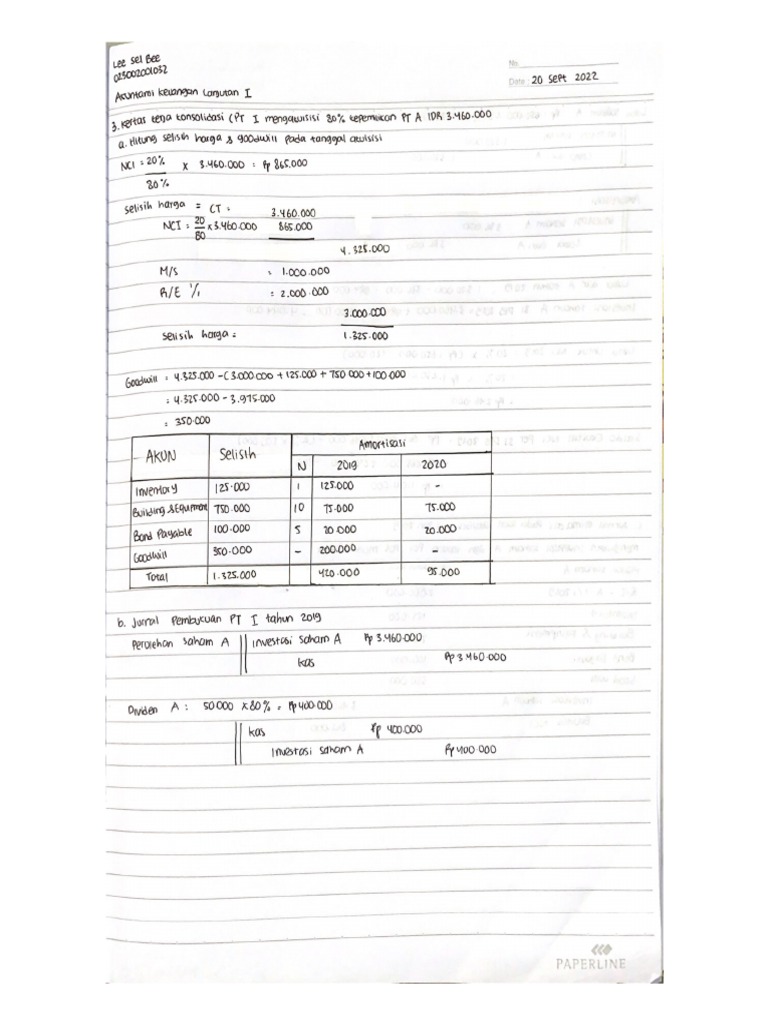 Lee Sel Bee
025002001032
No.
Date: 20 Sept 2022
Akuntansi Keuangan Lanjutan I
3. Kertas kerja konsolidasi (PT I mengakuisisi 80% kepemilikan PT A IDR 3.460.000
a. Hitung selisih harga & goodwill pada tanggal akuisisi
NCI = 20% x 3.460.000 = Rp 865.000
80%
Selisih harga = CT = 3.460.000
NCI = 20/80 x 3.460.000 865.000
4.325.000
M/S = 1.000.000
R/E 1/1 = 2.000.000
3.000.000
Selisih harga = 1.325.000
Goodwill = 4.325.000 - (3.000.000 + 125.000 + 750.000 + 100.000
= 4.325.000 - 3.975.000
= 350.000
AKUN Selisih Amortisasi
N 2019 2020
Inventory 125.000 1 125.000 -
Building & Equipment 750.000 10 75.000 75.000
Bond Payable 100.000 5 20.000 20.000
Goodwill 350.000 - 200.000 -
Total 1.325.000 420.000 95.000
b. Jurnal Pembukuan PT I tahun 2019
Perolehan saham A Investasi saham A Rp 3.460.000
kas Rp 3.460.000
Dividen A : 50000 x 80% = Rp 400.000
kas Rp 400.000
Investasi saham A Rp 400.000
PAPERLINE